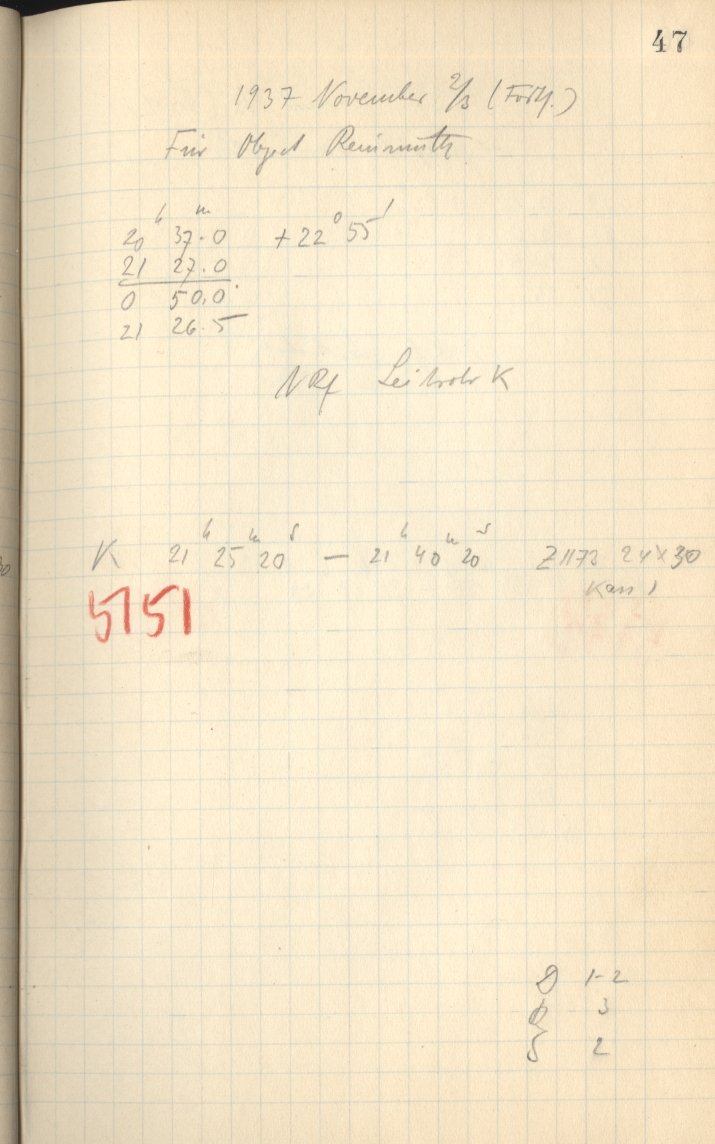 47
1937 November 2/3 (Forts.)
Für Object Reinmuth
20h 37m.0 +22° 55'
21 27.0
0 50.0
21 26.5
Leitrohr K
K 21h 25m 20s — 21h 40m 20s Z1173 24x30
Kass 1
5151
D 1-2
3
2